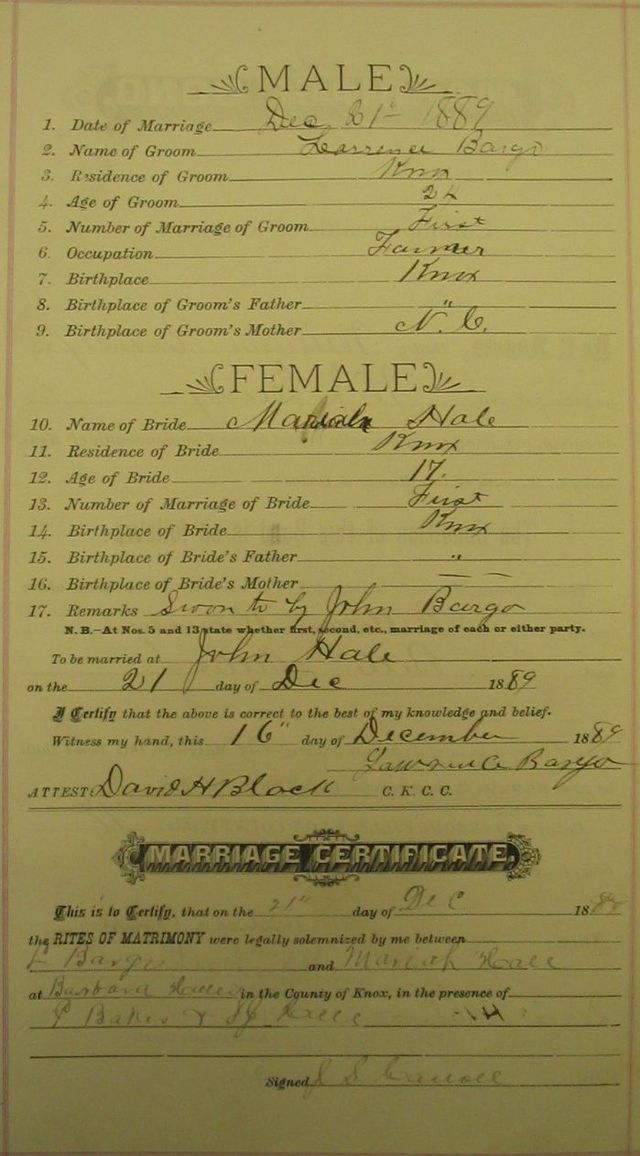 MALE
1. Date of Marriage Dec 21" 1889
2. Name of Groom Lawrence Bargo
3. Residence of Groom Knox
4. Age of Groom 24
5. Number of Marriage of Groom First
6. Occupation Farmer
7. Birthplace Knox
8. Birthplace of Groom's Father "
9. Birthplace of Groom's Mother N. C.
FEMALE
10. Name of Bride Mariah Hale
11. Residence of Bride Knox
12. Age of Bride 17.
13. Number of Marriage of Bride First
14. Birthplace of Bride Knox
15. Birthplace of Bride's Father "
16. Birthplace of Bride's Mother — —
17. Remarks Swon to by John Bargo
N. B.—At Nos. 5 and 13 state whether first, second, etc., marriage of each or either party.
To be married at John Hale
on the 21 day of Dec 1889
I Certify that the above is correct to the best of my knowledge and belief.
Witness my hand, this 16" day of December 1889
Lawrence Bargo
ATTEST: David H Black C. K. C. C.
MARRIAGE CERTIFICATE.
This is to Certify, that on the 21" day of Dec 18
the RITES OF MATRIMONY were legally solemnized by me between
L Bargo and Mariah Hale
at Barbara in the County of Knox, in the presence of
Signed J S